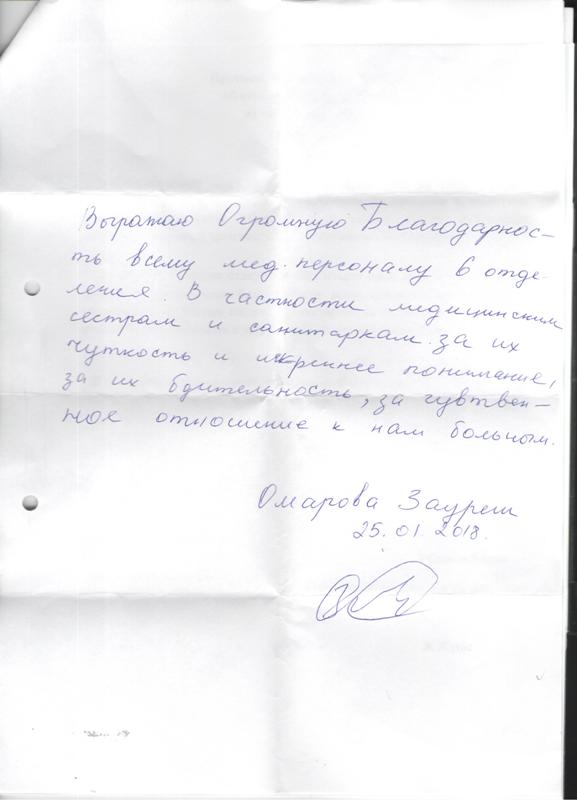 Выражаю Огромную Благодарнос-
ть всему мед. персоналу 6 отде-
ления. В частности медицинским
сестрам и санитаркам. за их
чуткость и искреннее понимание,
за их бдительность, за чувтвен-
ное отношение к нам больным.
Омарова Зауреш
25.01.2018.